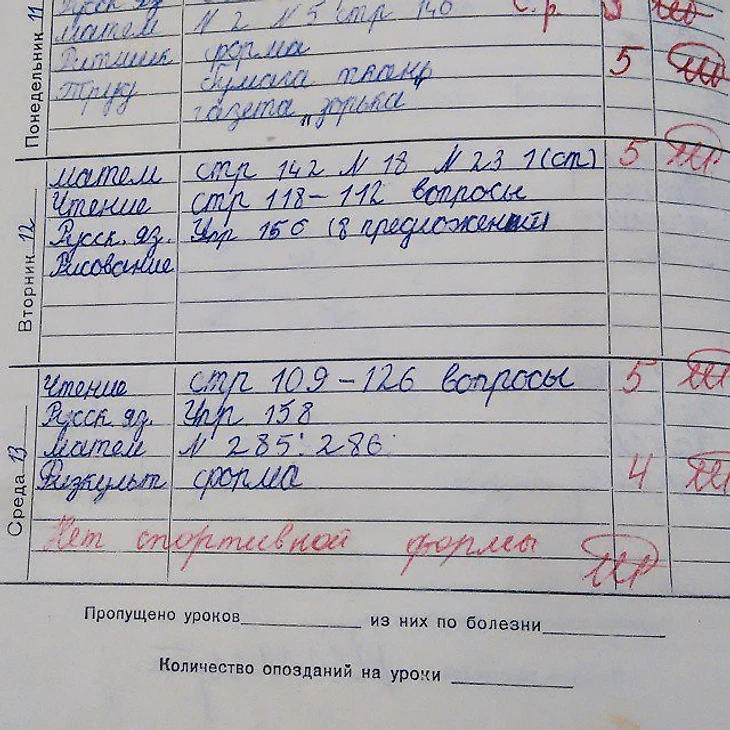 Понедельник 11
Русск яз
матем N 2 N 5 стр 140 С.р. 5
Ритмик форма 5
Труд бумага ткань
газета „зорька"
Вторник 12
матем стр 142 N 18 N 23 1(ст) 5
Чтение стр 118-112 вопросы
Русск. яз. Упр 156 (8 предложений)
Рисование
Среда 13
Чтение стр 109-126 вопросы 5
Русск яз. Упр 158
матем N 285: 286
Физкульт форма 4
Нет спортивной формы
Пропущено уроков из них по болезни
Количество опозданий на уроки